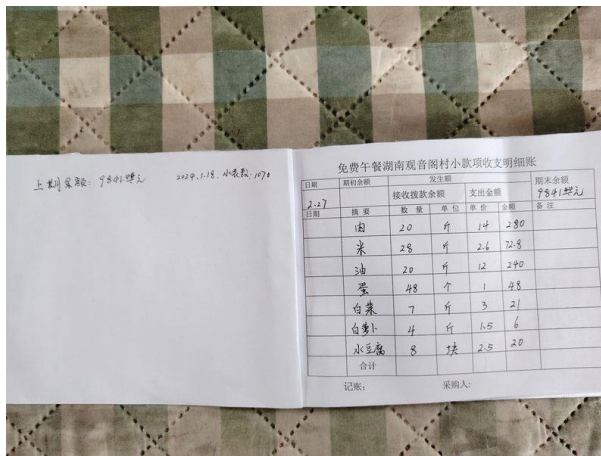 上期余额: 9841.
2024.1.18. 水表数: 1070
免费午餐湖南观音阁村小款项收支明细账
日期 期初余额 发生额 期末余额
接收拨款余额 支出金额 9841.
2.27
日期 摘要 数量 单位 单价 金额 备注
肉 20 斤 14 280
米 28 斤 2.6 72.8
油 20 斤 12 240
蛋 48 个 1 48
白菜 7 斤 3 21
白萝卜 4 斤 1.5 6
水豆腐 8 块 2.5 20
合计
记账: 采购人: